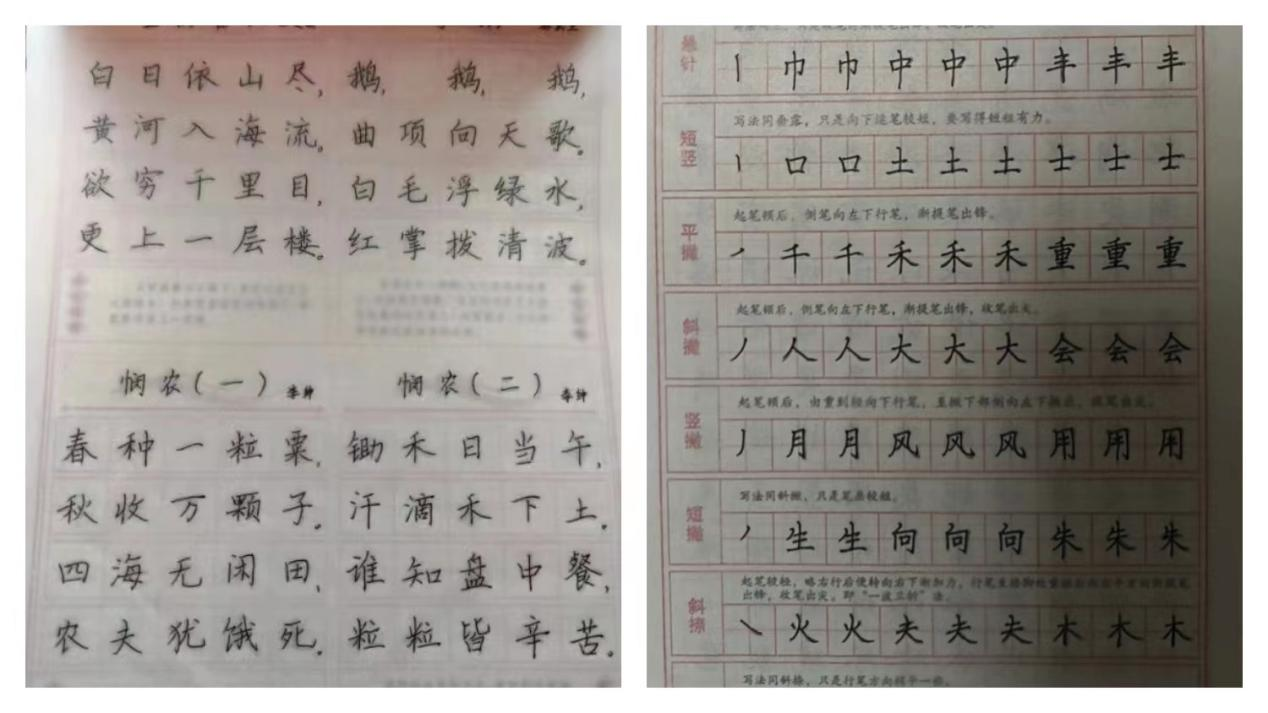 白日依山尽，
黄河入海流。
欲穷千里目，
更上一层楼。
鹅，鹅，鹅，
曲项向天歌。
白毛浮绿水，
红掌拨清波。
悯农（一） 李绅
春种一粒粟，
秋收万颗子。
四海无闲田，
农夫犹饿死。
悯农（二） 李绅
锄禾日当午，
汗滴禾下土。
谁知盘中餐，
粒粒皆辛苦。
悬针
丨巾巾中中中丰丰丰
短竖
写法同垂露，只是向下运笔较短，要写得短粗有力。
丨口口土土土士士士
平撇
起笔顿后，侧笔向左下行笔，渐提笔出锋。
丿千千禾禾禾重重重
斜撇
起笔顿后，侧笔向左下行笔，渐提笔出锋，收笔出尖。
丿人人大大大会会会
竖撇
起笔顿后，由重到轻向下行笔，至撇下部侧向左下撇出，收笔出尖。
丿月月风风风用用用
短撇
写法同斜撇，只是笔画较短。
丿生生向向向朱朱朱
斜捺
起笔较轻，略右行后便转向右下渐加力，行笔至捺脚处重按后向右水平方向渐提笔
出锋，收笔出尖，即“一波三折”法。
㇏火火夫夫夫木木木
写法同斜捺，只是行笔方向稍平一些。